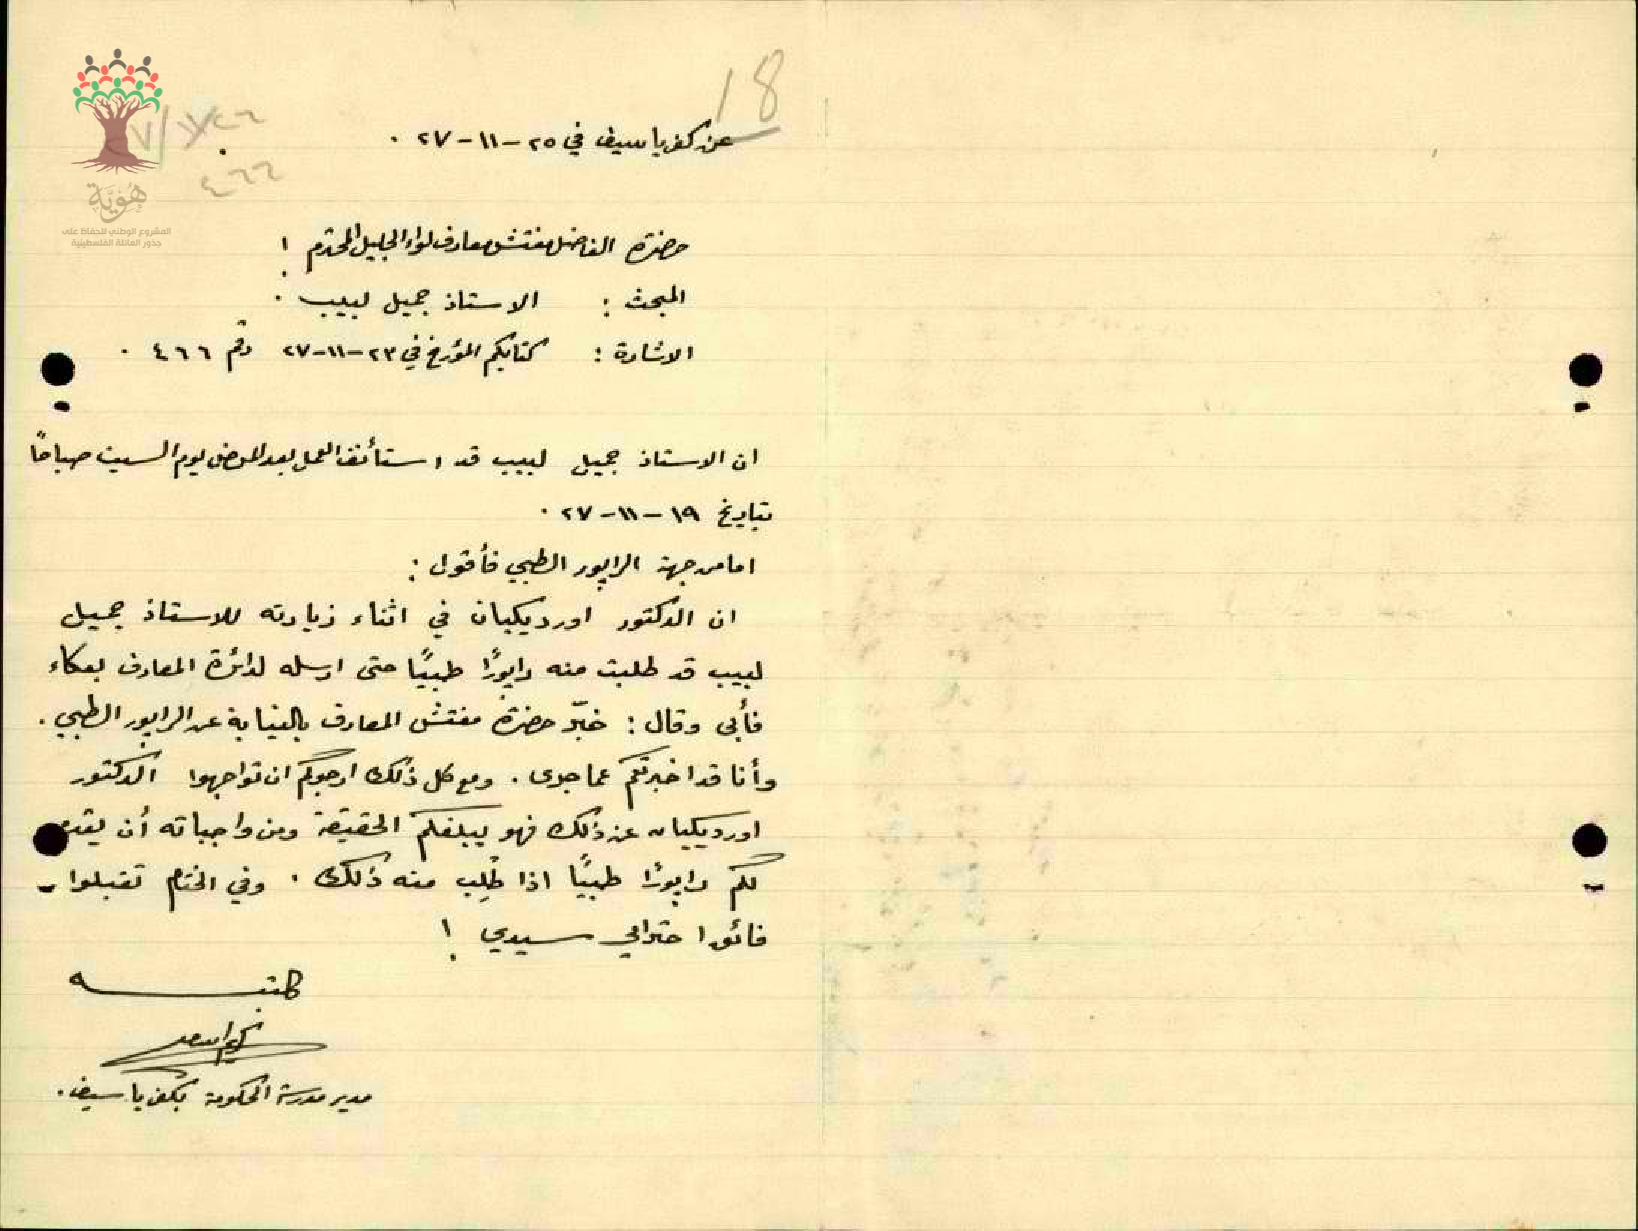 18
عن كفر ياسيف في ٢٥-١١-٢٧ .
٤٦٦
هُوِيَّة
المشروع الوطني للحفاظ على
جذور العائلة الفلسطينية
حضرة الفاضل مفتش معارف لواء الجليل المحترم !
المبحث : الاستاذ جميل لبيب .
الاشارة : كتابكم المؤرخ في ٢٣-١١-٢٧ رقم ٤٦٦ .
ان الاستاذ جميل لبيب قد استأنف العمل بعد المرض يوم السبت صباحًا
بتاريخ ١٩-١١-٢٧ .
اما من جهة الراپور الطبي فأقول :
ان الدكتور اورديكيان في اثناء زيارته للاستاذ جميل
لبيب قد طلبت منه راپورًا طبيًا حتى ارسله لدائرة المعارف بعكاء
فأبى وقال : خبّر حضرة مفتش المعارف بالنيابة عن الراپور الطبي .
وأنا قد اخبرتكم عما جرى . ومع كل ذلك ارجوكم ان تواجهوا الدكتور
اورديكيان عن ذلك فهو يبلغكم الحقيقة ومن واجباته أن يقدم
لكم راپورًا طبيًا اذا طُلِب منه ذلك . وفي الختام تقبلوا
فائق احترامي سيدي !
كاتبه
مدير مدرسة الحكومة بكفر ياسيف .